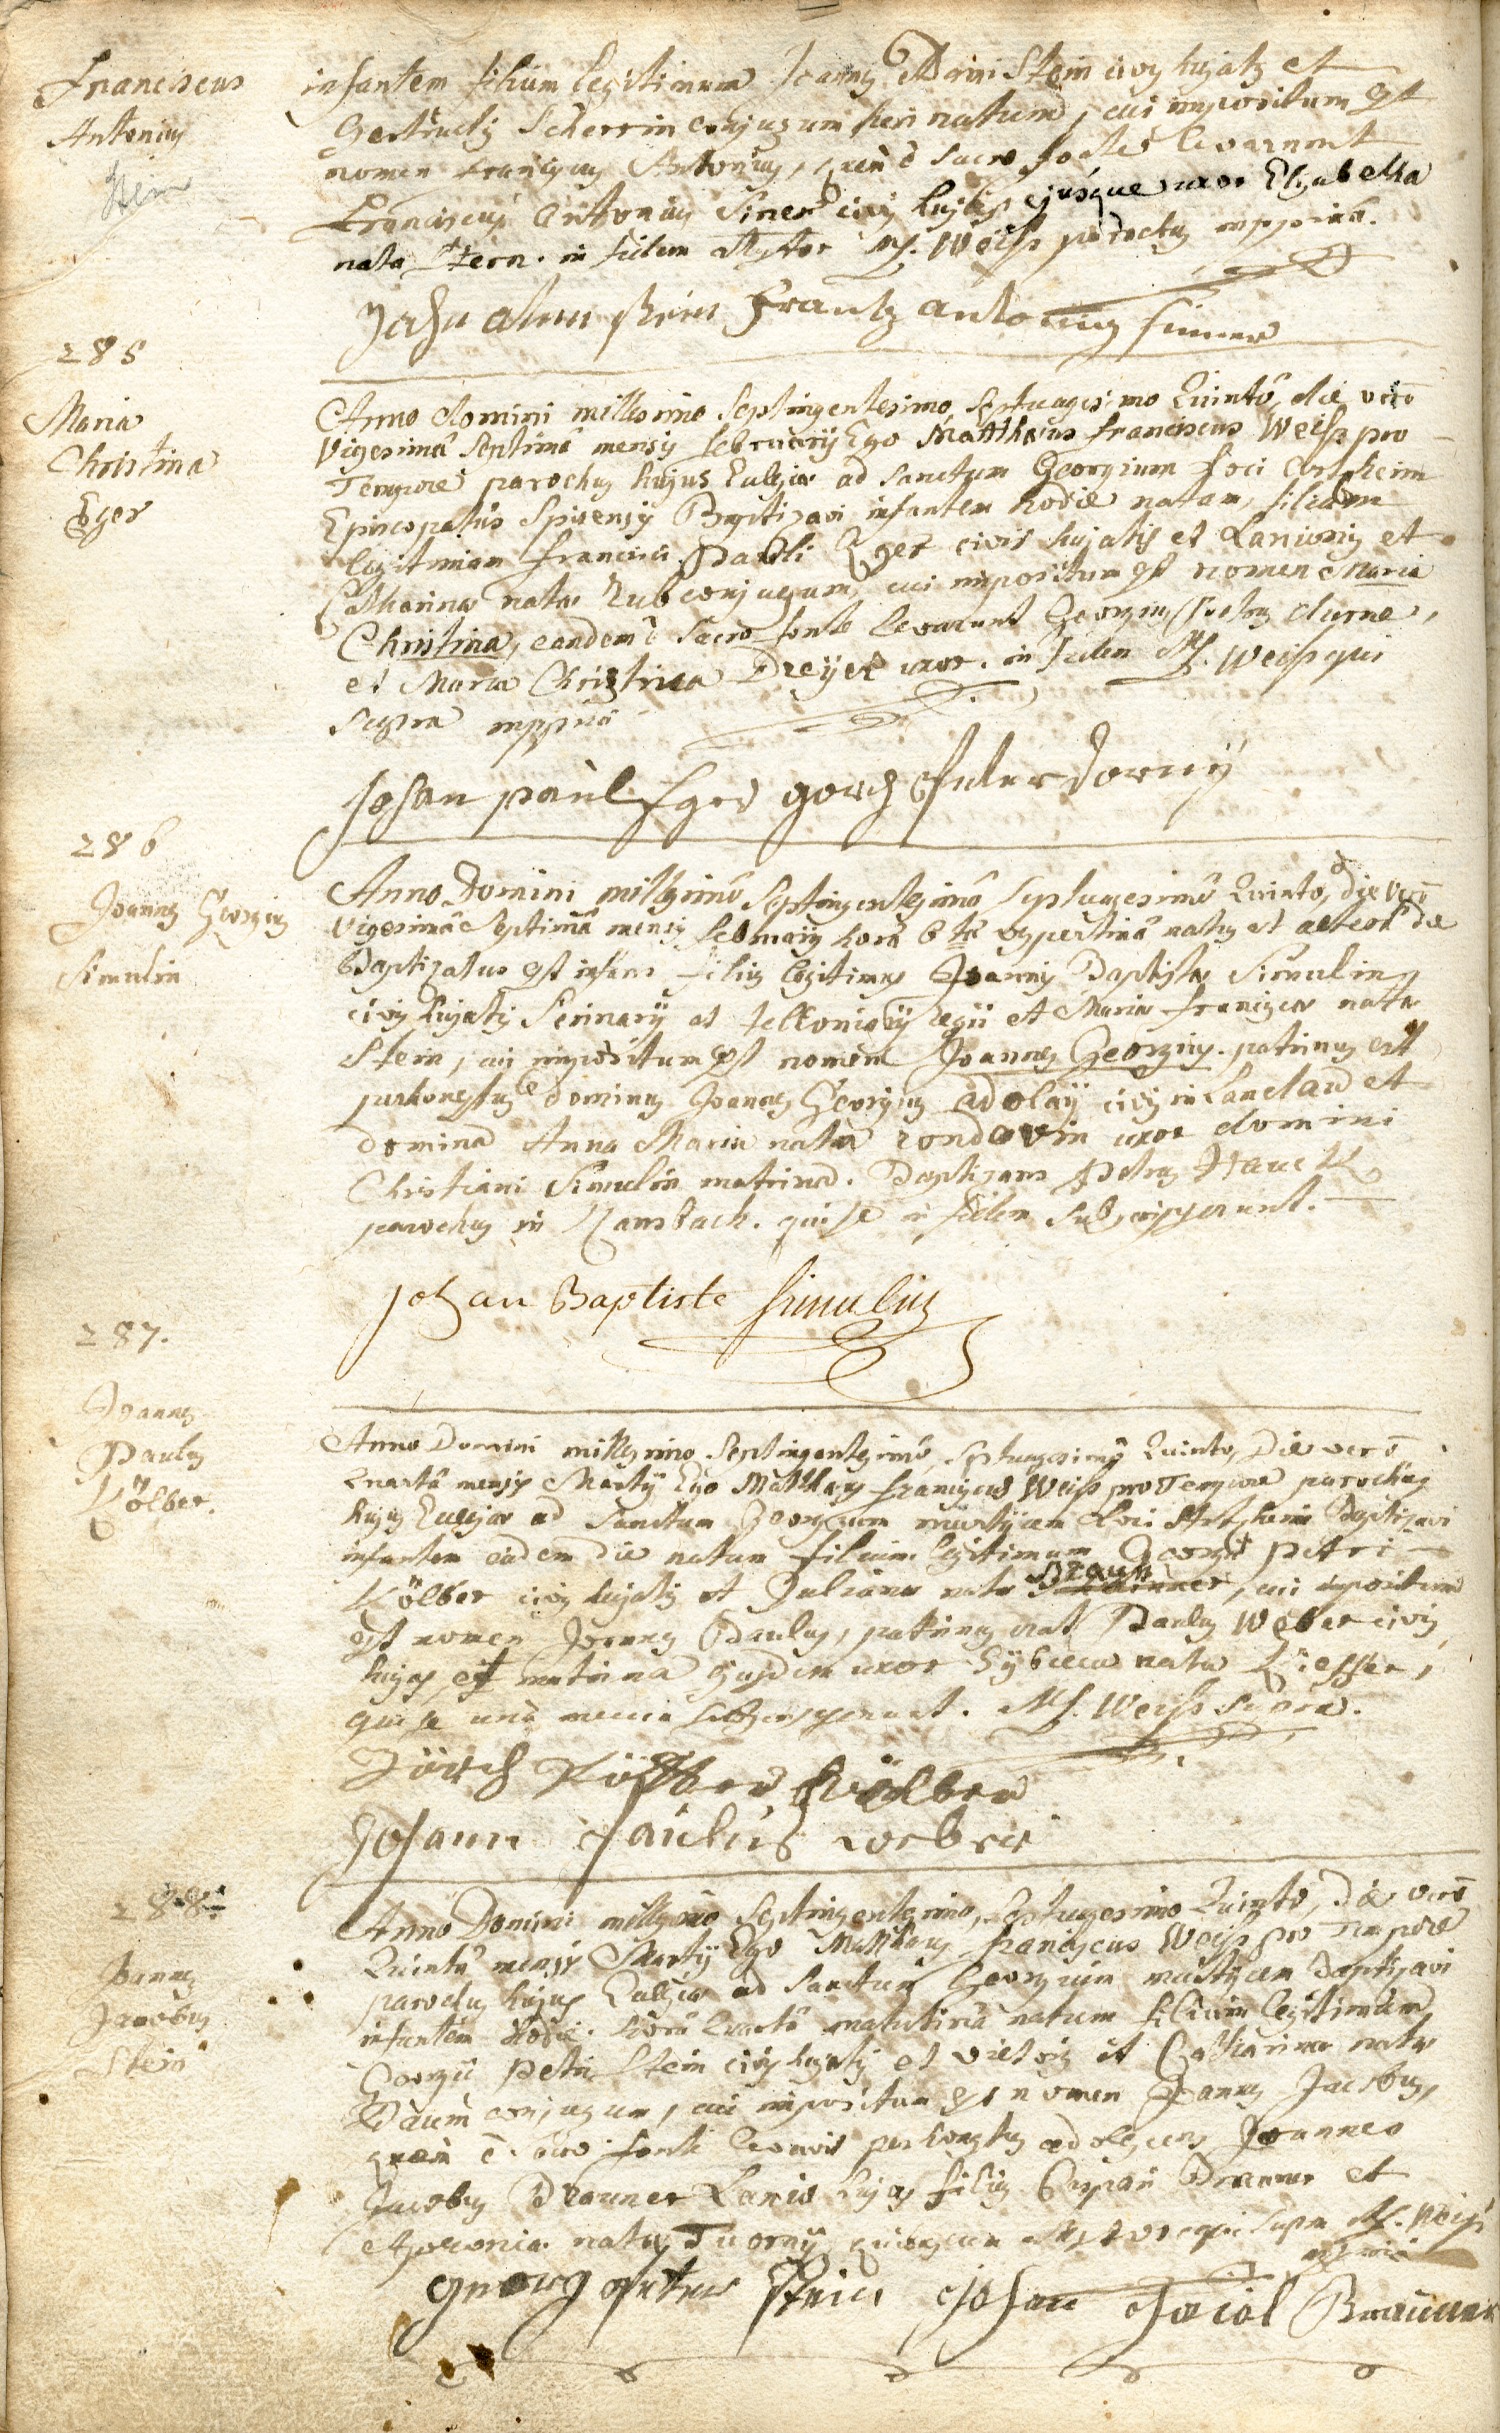 Franciscus
Antonius
Stein
infantem filium legitimum Joannis Adami Stein civis hujatis et
Gertrudis Scherrin conjugum heri natum, cui impositum est
nomen Franciscus Antonius, quem è sacro fonte levarunt
Franciscus Antonius Siner civis hujas ejusque uxor Elisabetha
nata Stern. in fidem attestor Mf. Weiss parochus mppriâ.
Johan adam stein Frantz antonius sinner
285
Maria
Christina
Eger
Anno domini millesimo septingentesimo septuagesimo Quinto, die verò
Vigesimâ septimâ mensis februarij Ego Matthaeus franciscus Weiss pro
Tempore parochus hujus Ecclesiae ad sanctum Georgium loci Artzheim
Episcopatûs Spirensis Baptizavi infantem hodie natam, filiam
legitimam francisci Pauli Eger civis hujatis et Lanionis et
Catharinae natae Zub conjugum, cui impositum est nomen Maria
Christina, eandem è sacro fonte levarunt Georgius Petrus durne,
et Maria Christina Dreyer uxor. in fidem Mf. Weiss qui
supra mppriâ
Johan paul Eger gorg peter dorny
286
Joannes Georgius
Simulin
Anno Domini millesimô septingentesimô septuagesimô Quinto, die verò
Vigesimâ Septimâ mensis februarij horâ 6tâ vespertinâ natus et alterâ die
Baptizatus est infans filius legitimus Joannis Baptistae Simulin
civis hujatis et telloniarij regii et Mariae franciscae natae
Stern, cui impositum est nomen Joannes Georgius. patrinus erat
perhonestus dominus Joannes Georgius adolay civis in Landau et
domina Anna Maria nata rondovin uxor domini
Christiani Simulin matrina. Baptizans Petrus Hauck
parochus in Ransbach. qui se in fidem subscripserunt.
Johan Baptiste Simulin
287.
Joannes
Paulus
Kölber.
Anno Domini millesimo septingentesimô septuagesimô Quinto, Die verò
Quartâ mensis Martij Ego Matthaeus franciscus Weiss pro Tempore parochus
hujus Ecclesiae ad sanctum Georgium martyrem loci Artzheim Baptizavi
infantem eâdem die natum filium legitimum Georgii petri
Kölber civis hujatis et Julianae natae Braun, cui impositum
est nomen Joannes Paulus, patrinus erat Paulus Weber civis
hujas et matrina ejusdem uxor Sybilla nata Kieffer,
qui se unâ mecum subscripserunt. Mf. Weiss supra.
Jörch Kölber
Johann Paulus weber
288
Joannes
Jacobus
Stein
Anno Domini millesimo septingentesimo, septuagesimo Quinto, Die verò
Quintâ mensis Martij Ego Matthaeus franciscus Weiss pro Tempore
parochus hujus Ecclesiae ad sanctum Georgium martyrem Baptizavi
infantem hodie horâ Quartâ matutinâ natum filium legitimum
Georgii petri Stein civis hujatis et vietoris et Catharinae natae
Daum conjugum, cui impositum est nomen Joannes Jacobus,
quem è sacro fonte levavit perhonestus adolescens Joannes
Jacobus Brauner Lanio hujas filius Caspari Brauner et
Apoloniae natae Duorny quibuscum attestor qui supra Mf. Weiss
mppriâ
georg peter stein Johan Jacob Brauner